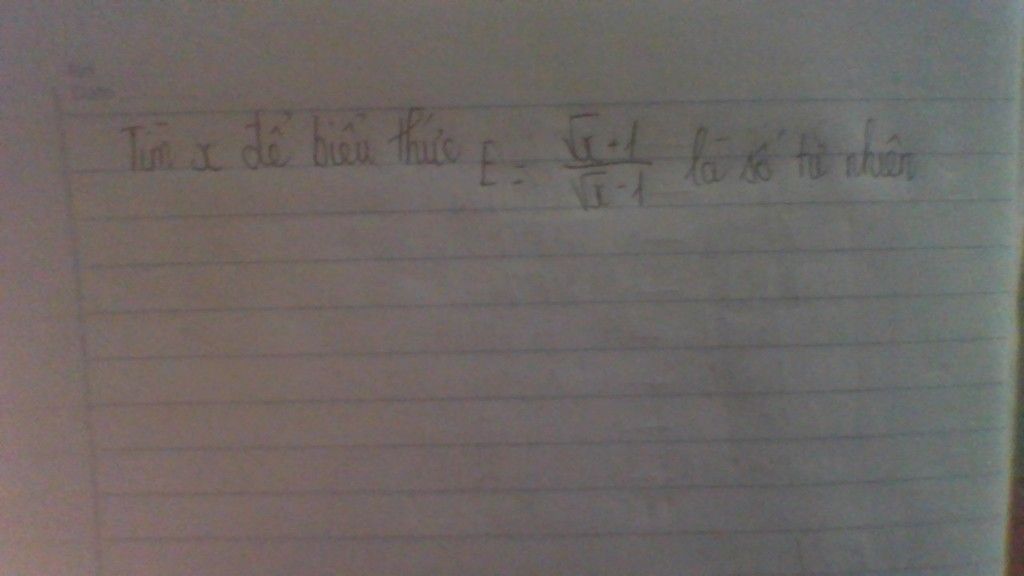 Tìm x để biểu thức E = \frac{\sqrt{x}+1}{\sqrt{x}-1} là số tự nhiên